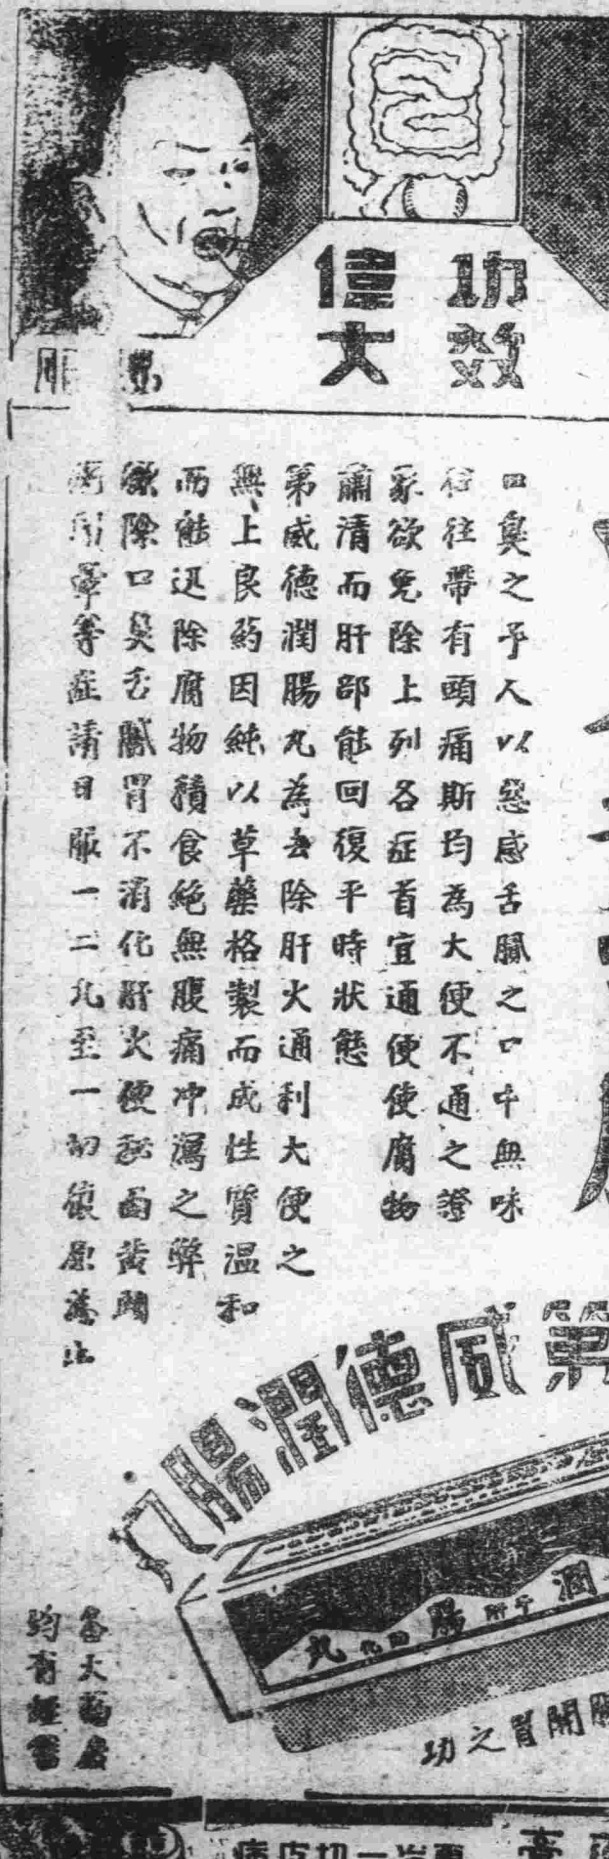 功效
偉大
口臭之予人以惡感舌膩之口中無味
往往帶有頭痛斯均為大便不通之證
象欲免除上列各症首宜通便使腐物
肅清而肝部能回復平時狀態
第威德潤腸丸為去除肝火通利大便之
無上良药因純以草藥格製而成性質溫和
而能迅除腐物積食絕無腹痛冲瀉之弊
欲除口臭舌膩胃不消化肝火便秘面黃
等症請日服一二丸至一切復原為止
第威德潤腸丸
潤
平肝
腸
化
丸
開胃之功
各大药房
均有經售
病皮切一